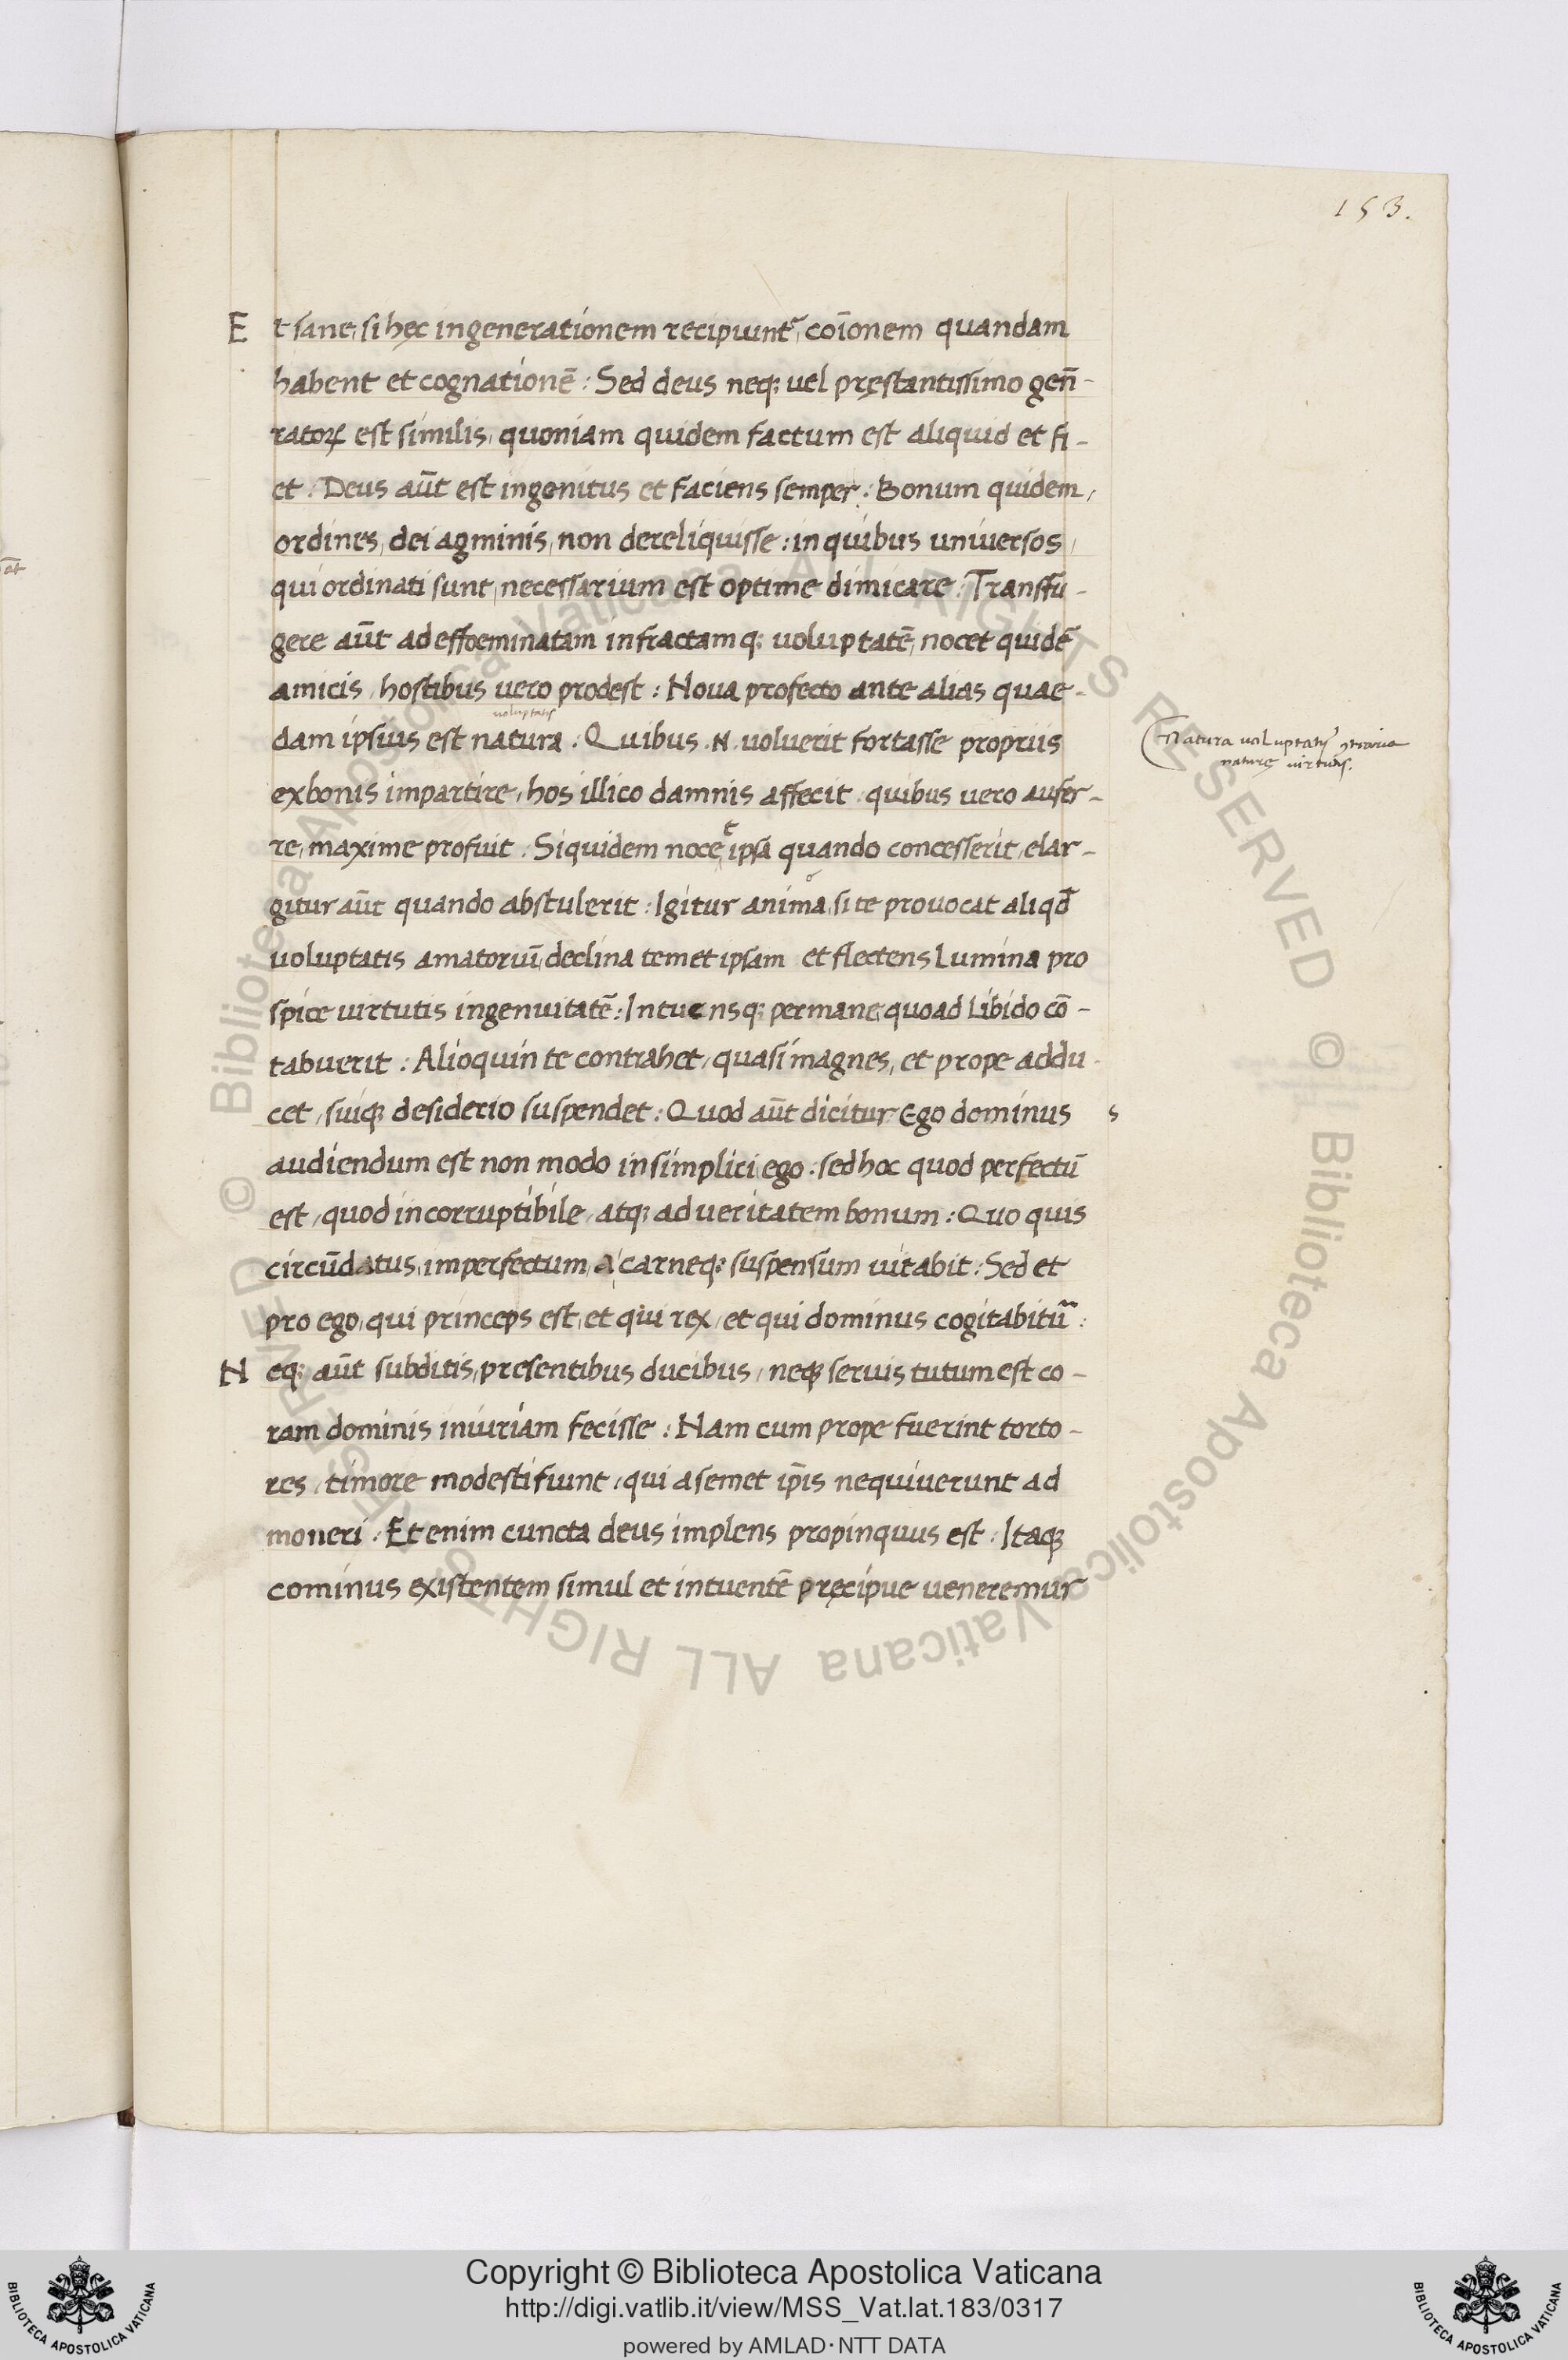 153.
Et sane, si hęc in generationem recipiunt᷑, coīonem quandam
habent et cognationē : Sed deus neq; uel pręstantissimo gen̄-
ratoꝝ est similis, quoniam quidem factum est aliquid et fi-
et : Deus aūt est ingenitus et faciens semper : Bonum quidem,
ordines, dei agminis, non dereliquisse : in quibus uniuersos,
qui ordinati sunt, necessarium est optime dimicare : Transfu-
gere aūt ad effoeminatam infractamq; uoluptatē, nocet quidē
amicis, hostibus uero prodest : Noua profecto ante alias quae-
uoluptatis
dam ipsius est natura : Quibus .N. uoluerit fortasse propriis
Natura uoluptatis ꝯtraria
naturę uirtutis.
ex bonis impartire, hos illico damnis affecit . quibus uero aufer-
re, maxime profuit : Siquidem nocet ipsa quando concesserit, elar-
gitur aūt quando abstulerit : Igitur anima, o si te prouocat aliqd̄
uoluptatis amatoriū, declina temet ipsam et flectens Lumina pro
spice uirtutis ingenuitatē : Intuensq; permane, quoad Libido cō-
tabuerit : Alioquin te contrahet, quasi magnes, et prope addu-
cet, suiq; desiderio suspendet : Quod aūt dicitur Ego dominus s
audiendum est non modo in simplici, ego . sed hoc quod perfectū
est, quod incorruptibile, atq; ad ueritatem bonum : Quo quis
circūdatus, imperfectum, a carneq; suspensum uitabit : Sed et
pro ego, qui princeps est, et qui rex, et qui dominus cogitabitur :
Neq; aūt subditis, presentibus ducibus, neq; seruis tutum est co-
ram dominis iniuriam fecisse : Nam cum prope fuerint torto-
res, timore modesti fiunt, qui a semet ip̄is nequiuerunt ad
moneri : Et enim cuncta deus implens propinquus est : Itaq;
cominus existentem simul et intuentē pręcipue ueneremur
© Biblioteca Apostolica Vaticana ALL RIGHTS RESERVED
© Biblioteca Apostolica Vaticana ALL RIGHTS RESERVED
Copyright © Biblioteca Apostolica Vaticana
http://digi.vatlib.it/view/MSS_Vat.lat.183/0317
powered by AMLAD·NTT DATA
BIBLIOTECA APOSTOLICA VATICANA
BIBLIOTECA APOSTOLICA VATICANA